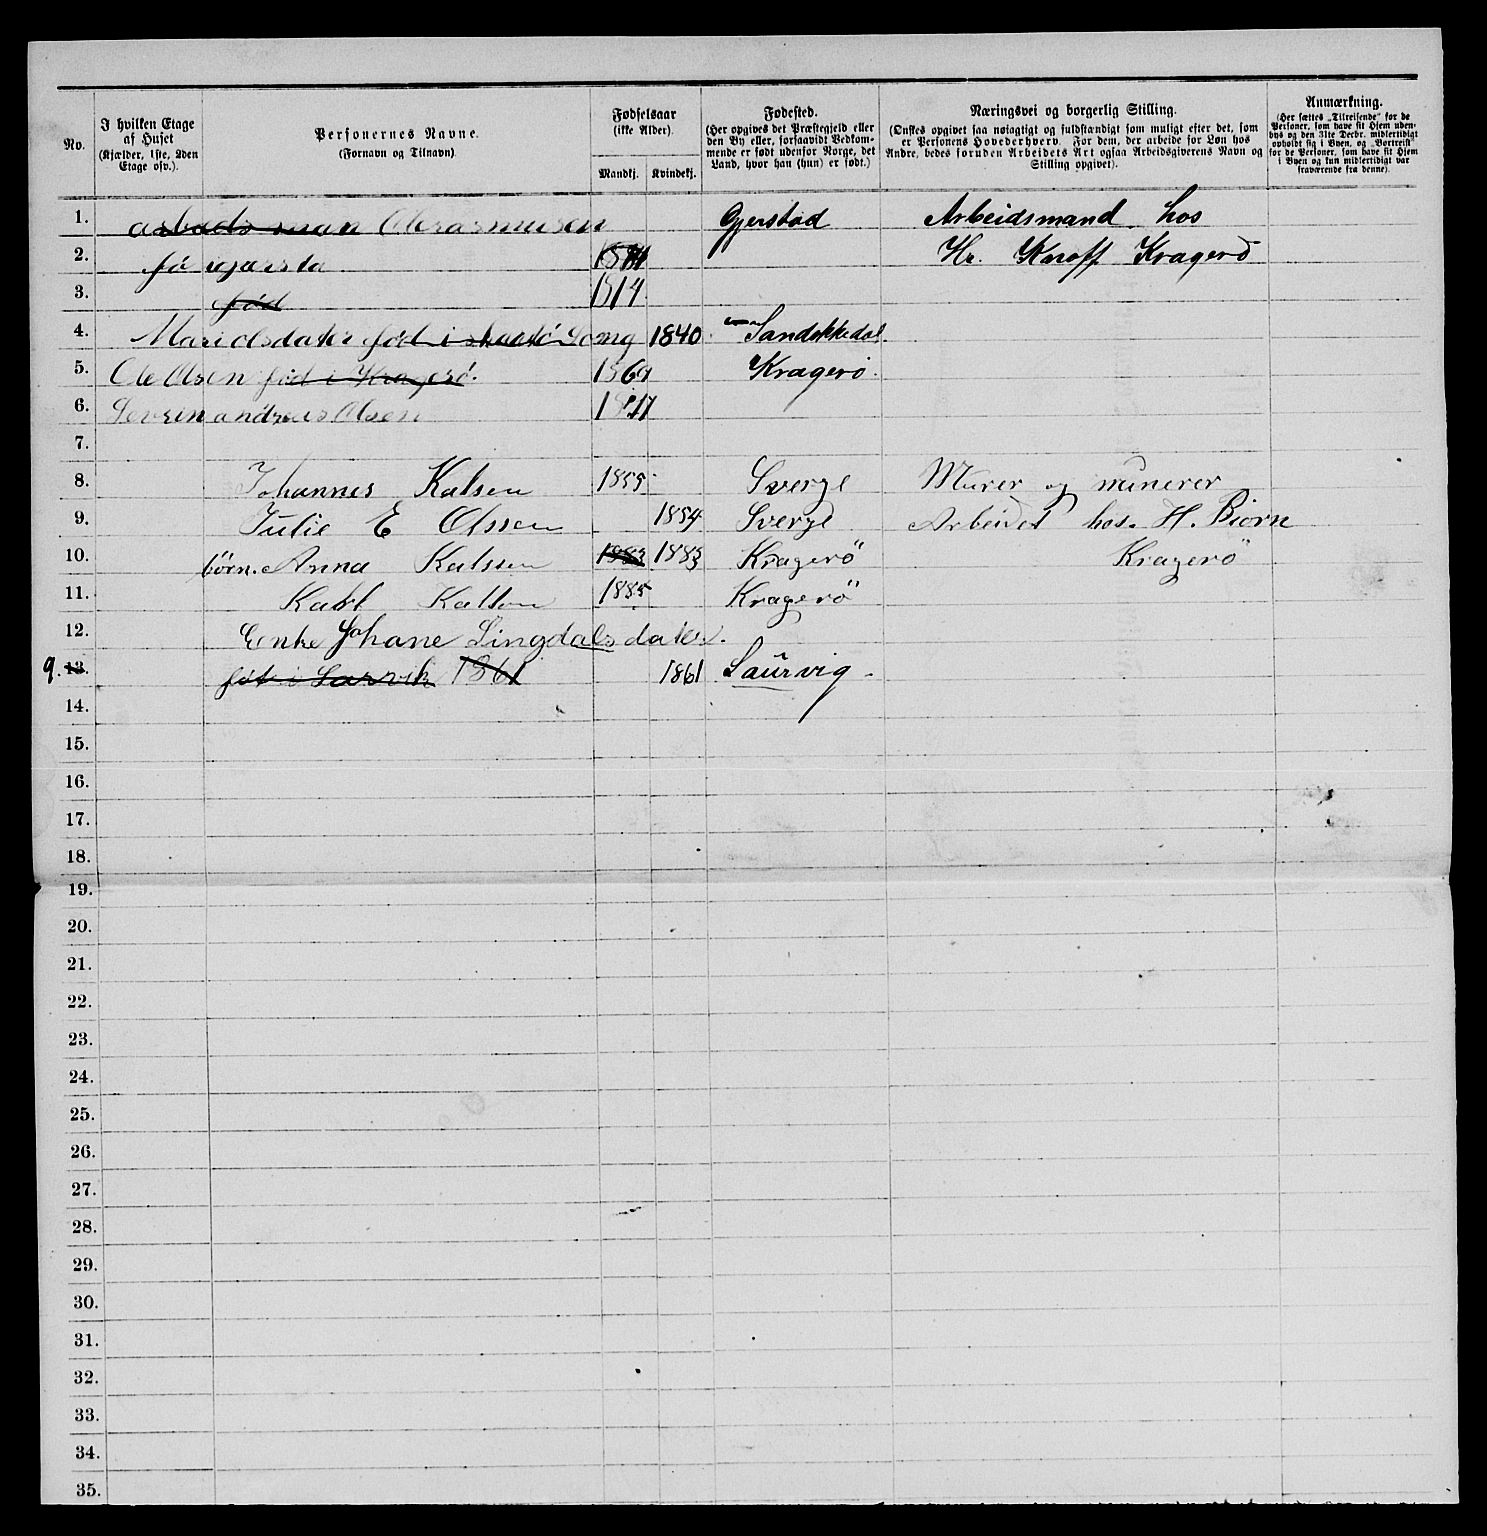 No.
I hvilken Etage af Huset (Kjælder, 1ste, 2den Etage osv.).
Personernes Navne.
(Fornavn og Tilnavn)
Fødselsaar
(ikke Alder).
Mandkj. Kvindekj.
Fødested.
(Her opgives det Præstegjeld eller
den By eller, forsaavidt Vedkom-
mende er født udenfor Norge, det
Land, hvor han (hun) er født.)
Næringsvei og borgerlig Stilling.
(Ønskes opgivet saa nøiagtigt og fuldstændigt som muligt efter det, som
er Personens Hovederhverv. For dem, der arbeide for Løn hos
Andre, bedes foruden Arbeidets Art ogsaa Arbeidsgiverens Navn og
Stilling opgivet).
Anmærkning.
(Her sættes „Tilreisende" for de
Personer, som have sit Hjem uden-
bys og den 31te Decbr. midlertidigt
opholdt sig i Byen, og „Bortreist"
for de Personer, som have sit Hjem
i Byen og kun midlertidigt var
fraværende fra denne).
1. arbads man Olerasmusen Gjerstad Arbeidsmand hos
2. fö Hr. Knoff Kragerö
3. fød 1814
4. Mari olsdater fød i 1840 Sandøkkedal
5. Ole Olsen fød i Kragerø. 1869 Kragerø.
6. Severin andreas Olsen
7.
8. Johannes Kalsen 1855 Sverge Murer og minerer
9. Julie E Olssen 1854 Sverge Arbeidet hos. H. Biørn
10. börn. Anna Kalssen 1883 1883 Kragerö Kragerö
11. Karl Kalson 1885 Kragerö
12. Enke Johane Lingdalsdater.
9. 13. føt i Larvik 1861 1861 Laurvig
14.
15.
16.
17.
18.
19.
20.
21.
22.
23.
24.
25.
26.
27.
28.
29.
30.
31.
32.
33.
34.
35.